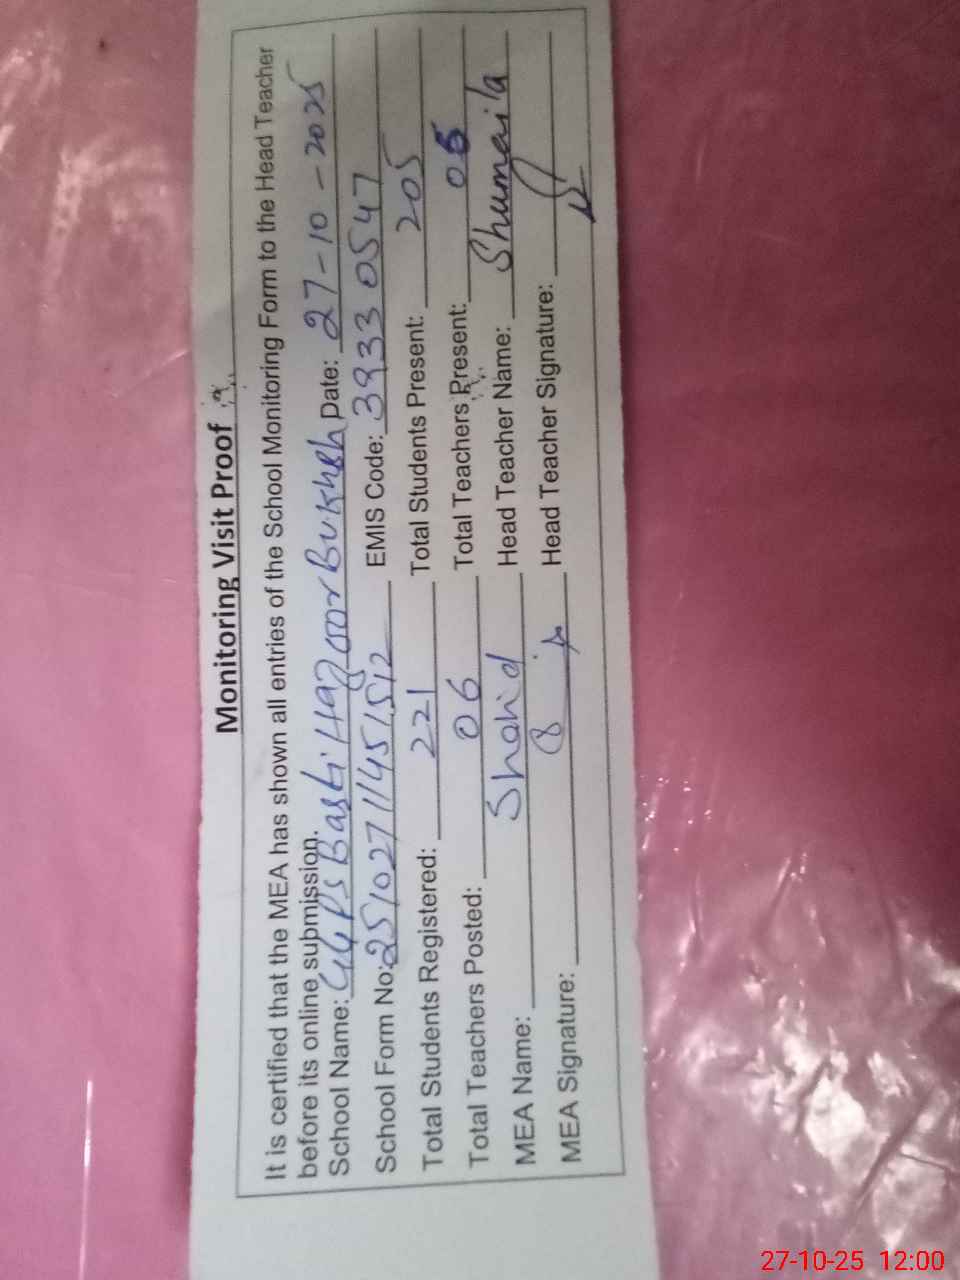 Monitoring Visit Proof
It is certified that the MEA has shown all entries of the School Monitoring Form to the Head Teacher
before its online submission.
School Name: GGPS Basti Hazoor Bukhsh Date: 27-10-2025
School Form No: 25102711451512 EMIS Code: 39330547
Total Students Registered: 221 Total Students Present: 205
Total Teachers Posted: 06 Total Teachers Present: 06
MEA Name: Shahid Head Teacher Name: Shumaila
MEA Signature: Head Teacher Signature:
27-10-25 12:00